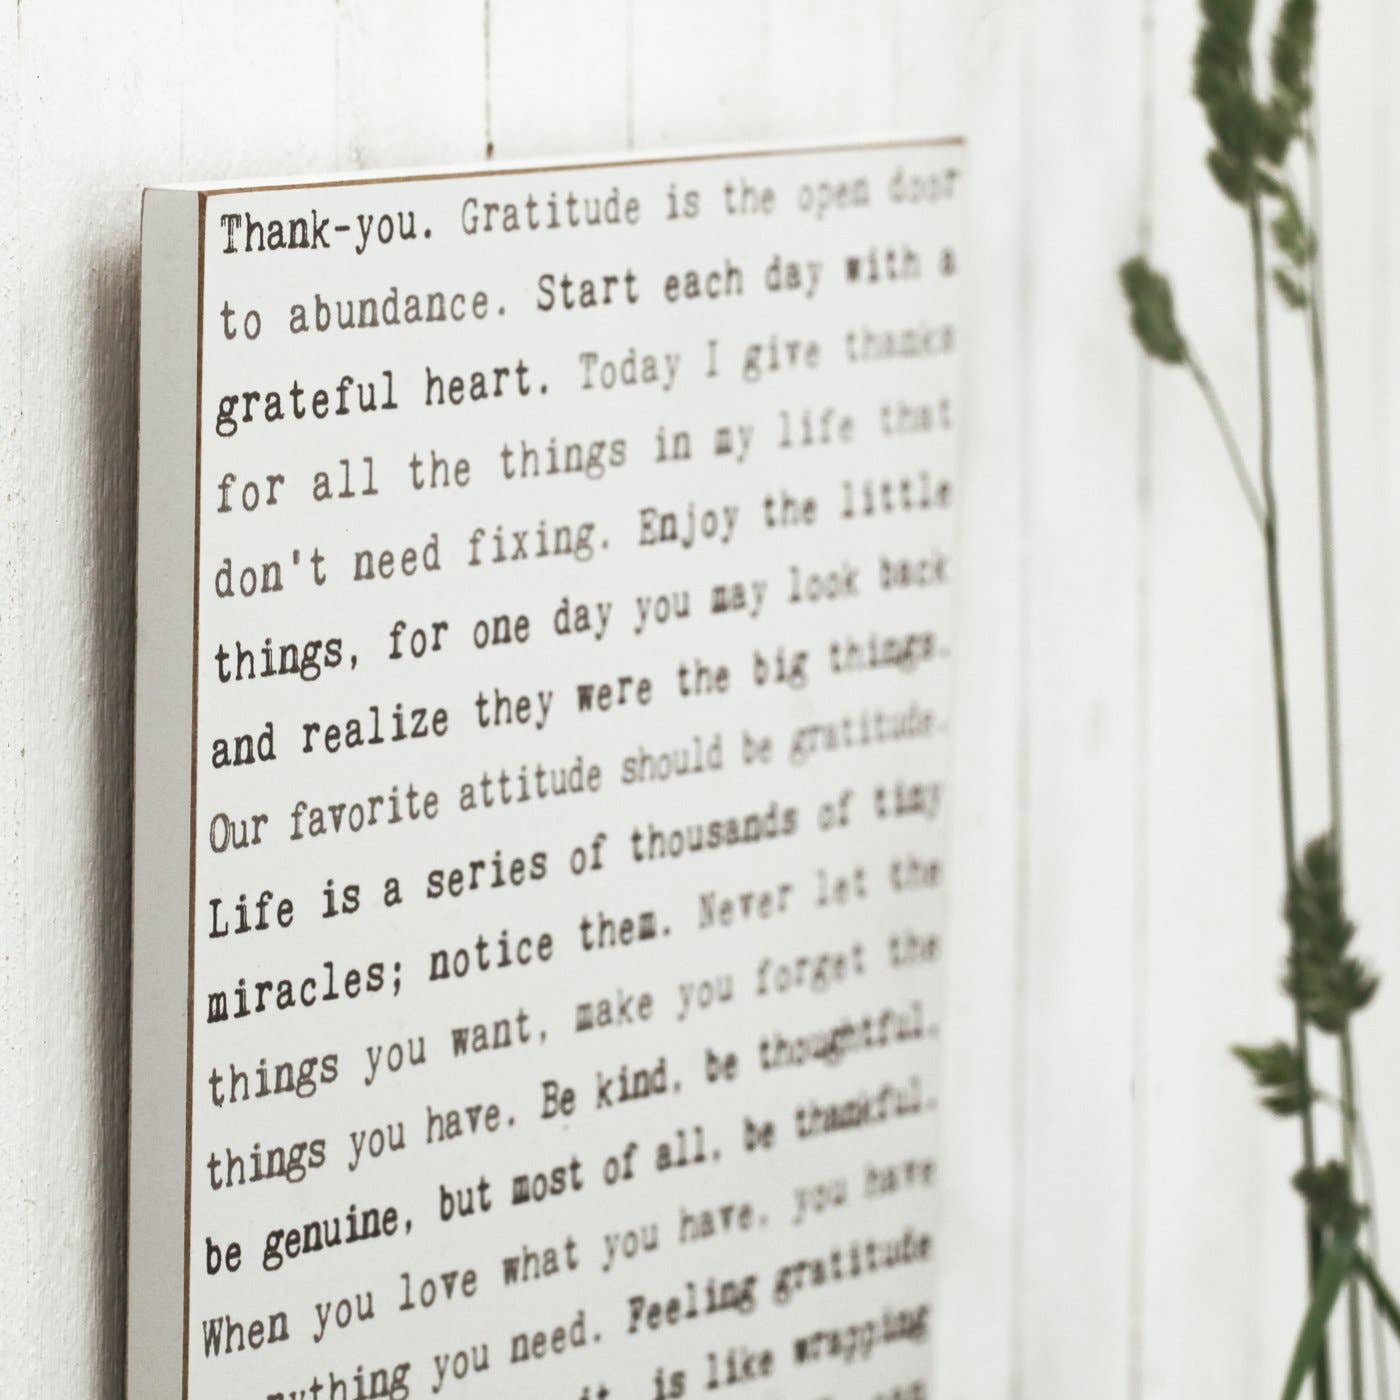 Thank-you. Gratitude is the open door
to abundance. Start each day with a
grateful heart. Today I give thanks
for all the things in my life that
don't need fixing. Enjoy the little
things, for one day you may look back
and realize they were the big things.
Our favorite attitude should be gratitude.
Life is a series of thousands of tiny
miracles; notice them. Never let the
things you want, make you forget the
things you have. Be kind, be thoughtful,
be genuine, but most of all, be thankful.
When you love what you have, you have
you need. Feeling gratitude
is like wrapping